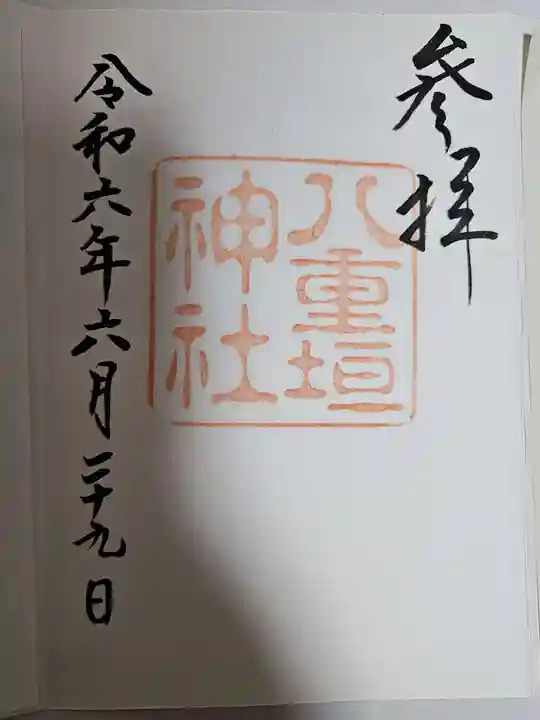 參拝
八重垣
神社
令和六年六月二十九日